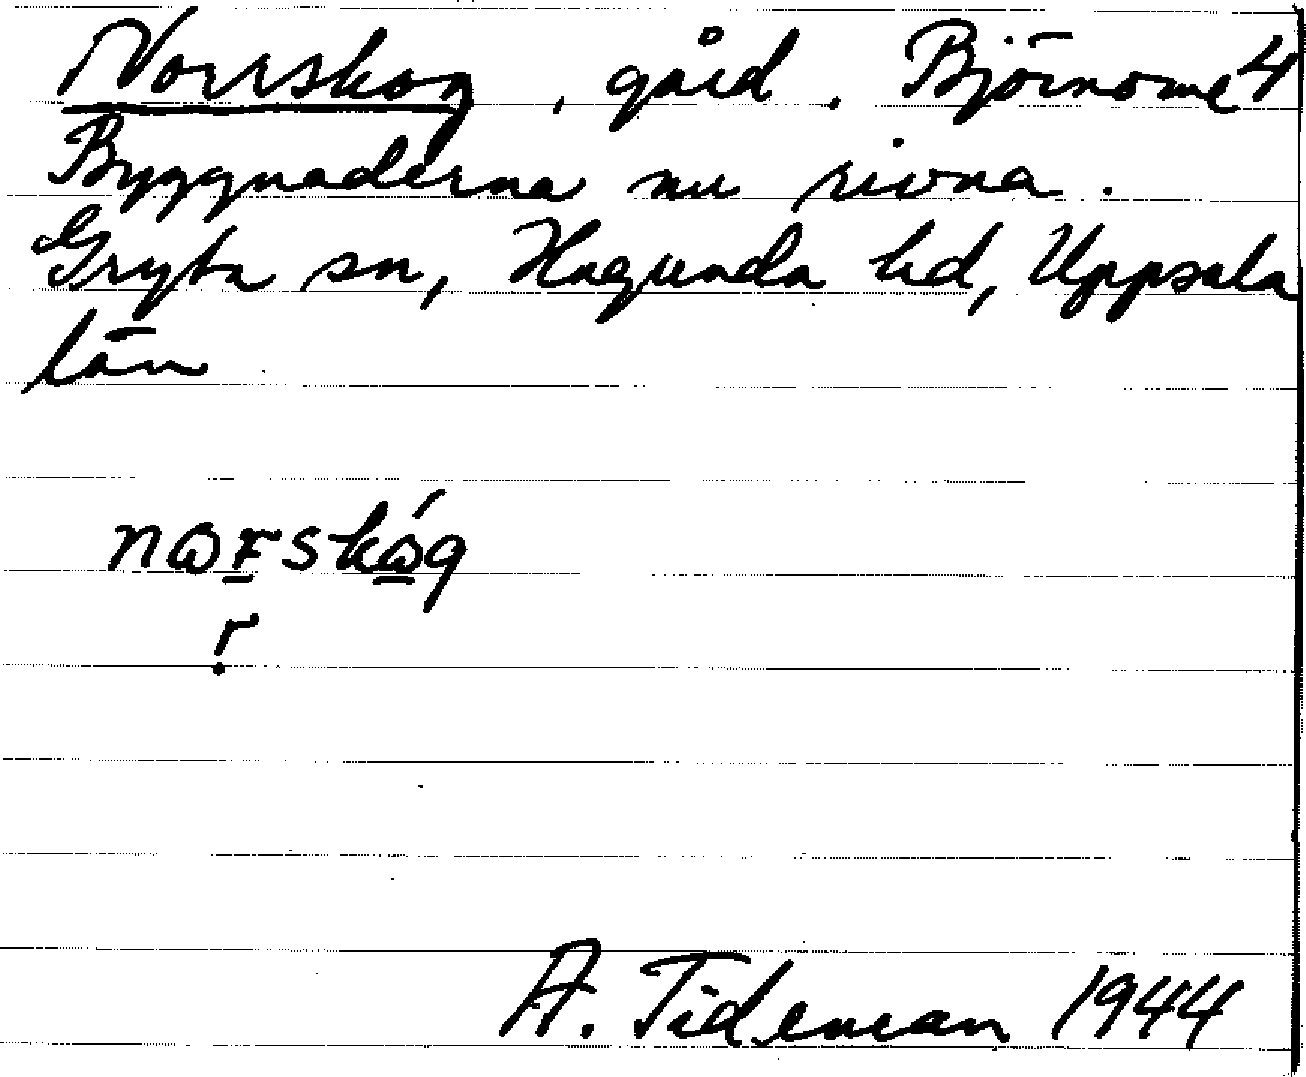 Norrskog, gård. Björnome 4
Byggnaderna nu rivna.
Gryta sn, Hagunda hd, Uppsala
län
A. Tideman 1944